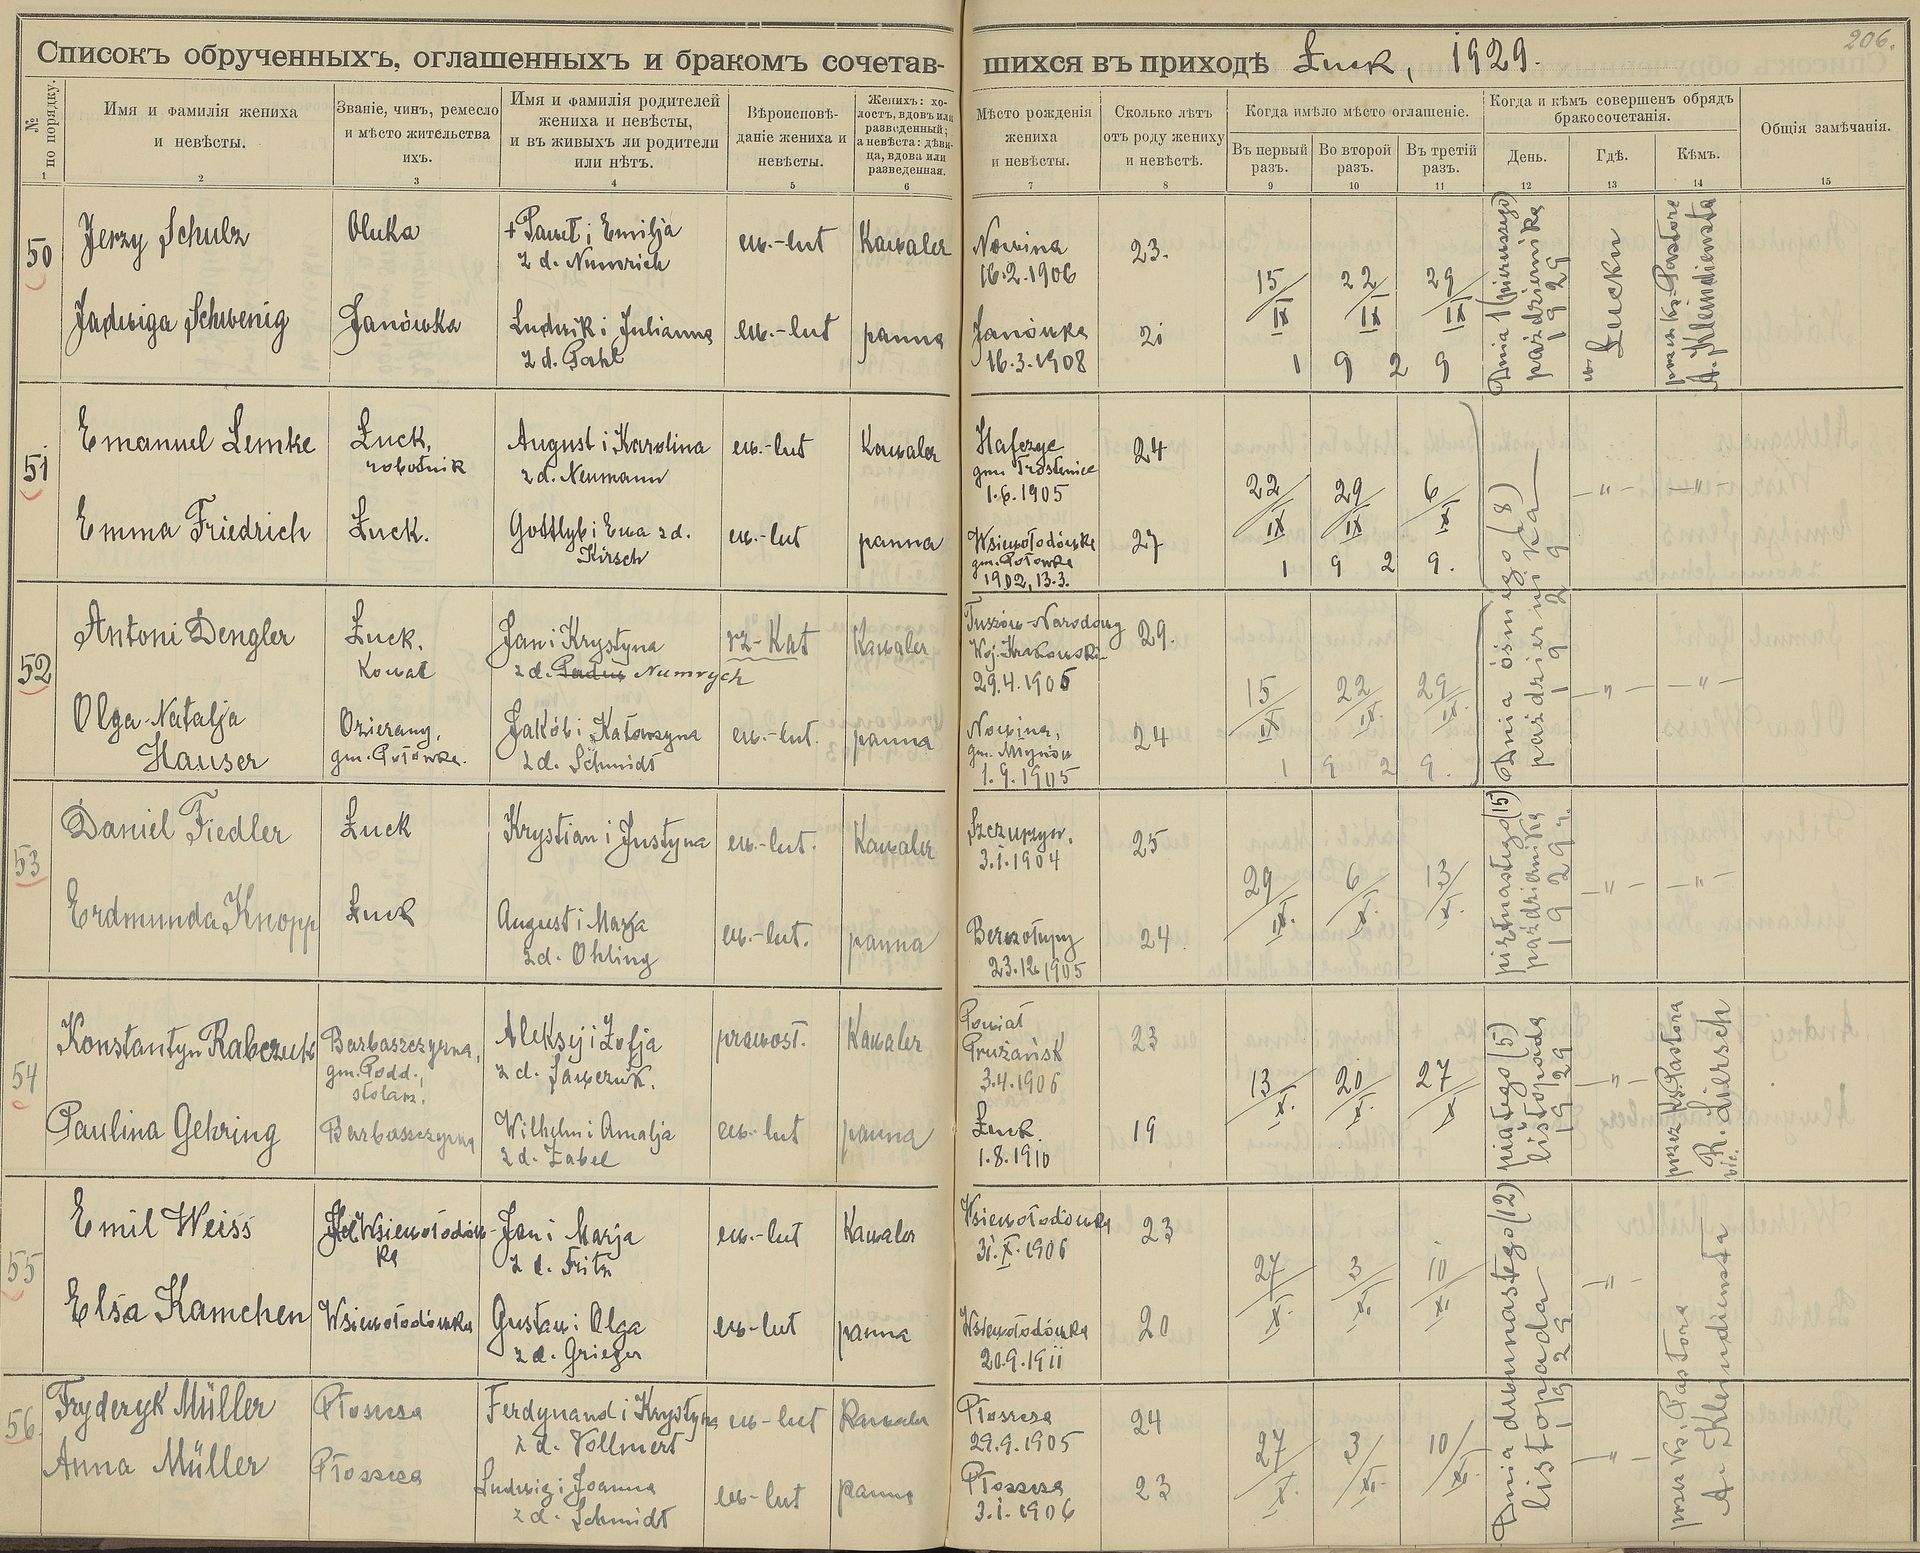 206.
Списокъ обрученныхъ, оглашенныхъ и бракомъ сочетав-
шихся въ приходѣ Łuck, 1929.
№ по порядку.
Имя и фамилія жениха
и невѣсты.
Званіе, чинъ, ремесло
и мѣсто жительства
ихъ.
Имя и фамилія родителей
жениха и невѣсты,
и въ живыхъ ли родители
или нѣтъ.
Вѣроисповѣ-
даніе жениха и
невѣсты.
Женихъ: хо-
лостъ, вдовъ или
разведенный;
а невѣста: дѣви-
ца, вдова или
разведенная.
Мѣсто рожденія
жениха
и невѣсты.
Сколько лѣтъ
отъ роду жениху
и невѣстѣ.
Когда имѣло мѣсто оглашеніе.
Въ первый
разъ.
Во второй
разъ.
Въ третій
разъ.
Когда и кѣмъ совершенъ обрядъ
бракосочетанія.
День.
Гдѣ.
Кѣмъ.
Общія замѣчанія.
1 2 3 4 5 6 7 8 9 10 11 12 13 14 15
50
Jerzy Schulz
Ołuka
+ Paweł i Emilja
z d. Numrich
ew.-lut
Kawaler
Nowina
16.2.1906
23.
Jadwiga Schwenig
Janówka
Ludwik i Julianna
z d. Pahl
ew.-lut
panna
Janówka
16.3.1908
21
15/IX 22/IX 29/IX
1 9 2 9
Dnia 1 (pierwszego)
października
1929
w Łucku
przez Ks. Pastora
A. Kleindiensta
51
Emanuel Lemke
Łuck,
robotnik
August i Karolina
z d. Neumann
ew.-lut
Kawaler
gm. Trostenice
1.6.1905
24
Emma Friedrich
Łuck.
Gottlyb i Ewa z d.
Kirsch
ew.-lut
panna
Wsiewołodówka
gm. Połowka
1902, 13.3.
27
22/IX 29/IX 6/X
1 9 2 9.
Dnia ósmego (8)
października
1929
-"- -"-
52
Antoni Dengler
Łuck.
Kowal
Jan i Krystyna
z d. Numrych
rz-Kat
Kawaler
Tuszów-Narodowy
29.4.1905
29.
Olga-Natalja
Hauser
Ozierany,
gm. Połowka.
Jakób i Katarzyna
z d. Schmidt
ew.-lut.
panna
Nowina,
gm. Młynów
1.9.1905
24
15/IX 22/IX. 29/IX.
1 9 2 9.
1929
-"- -"-
53
Daniel Fiedler
Łuck
Krystian i Justyna
ew.-lut.
Kawaler
Szczurzyn.
3.1.1904
25
Erdmunda Knopp
Łuck
August i Marja
z d. Ohling
ew.-lut.
panna
Berezołupy
23.12.1905
24.
29/IX. 6/X. 13/X.
piętnastego (15)
października
1929 r.
-"- -"-
54
Konstantyn Rabczuk
Barbaszczyzna,
gm. Podd.,
stolarz.
Aleksy i Zofja
z d. Sawczuk.
prawosł.
Kawaler
Powiat
Prużańsk
3.4.1906
23
Paulina Gehring
Barbaszczyzna
Wilhelm i Amalja
z d. Zabel
ew.-lut
panna
Łuck.
1.8.1910
19
13/X. 20/X. 27/X
piątego (5)
listopada
1929
-"-
przez Ks. Pastora
R. Liersch
vic.
55
Emil Weiss
Wsiewołodów-
ka
Jan i Marja
z d. Fritz
ew.-lut
Kawaler
Wsiewołodówka
31.X.1906
23
Elsa Kamchen
Wsiewołodówka
Gustaw i Olga
z d. Grieger
ew-lut
panna
Wsiewołodówka
20.9.1911
20
27/X. 3/XI. 10/XI.
Dnia dwunastego (12)
listopada
1929
-"-
przez Ks. Pastora
A. Kleindiensta
56.
Fryderyk Müller
Płoszcza
Ferdynand i Krystyna
z d. Vollmert
ew-lut
Kawaler
Płoszcza
29.9.1905
24
Anna Müller
Płoszcza
Ludwig i Joanna
z d. Schmidt
ew-lut
panna
Płoszcza
3.1.1906
23
27/X. 3/XI. 10/XI.
1929
-"-